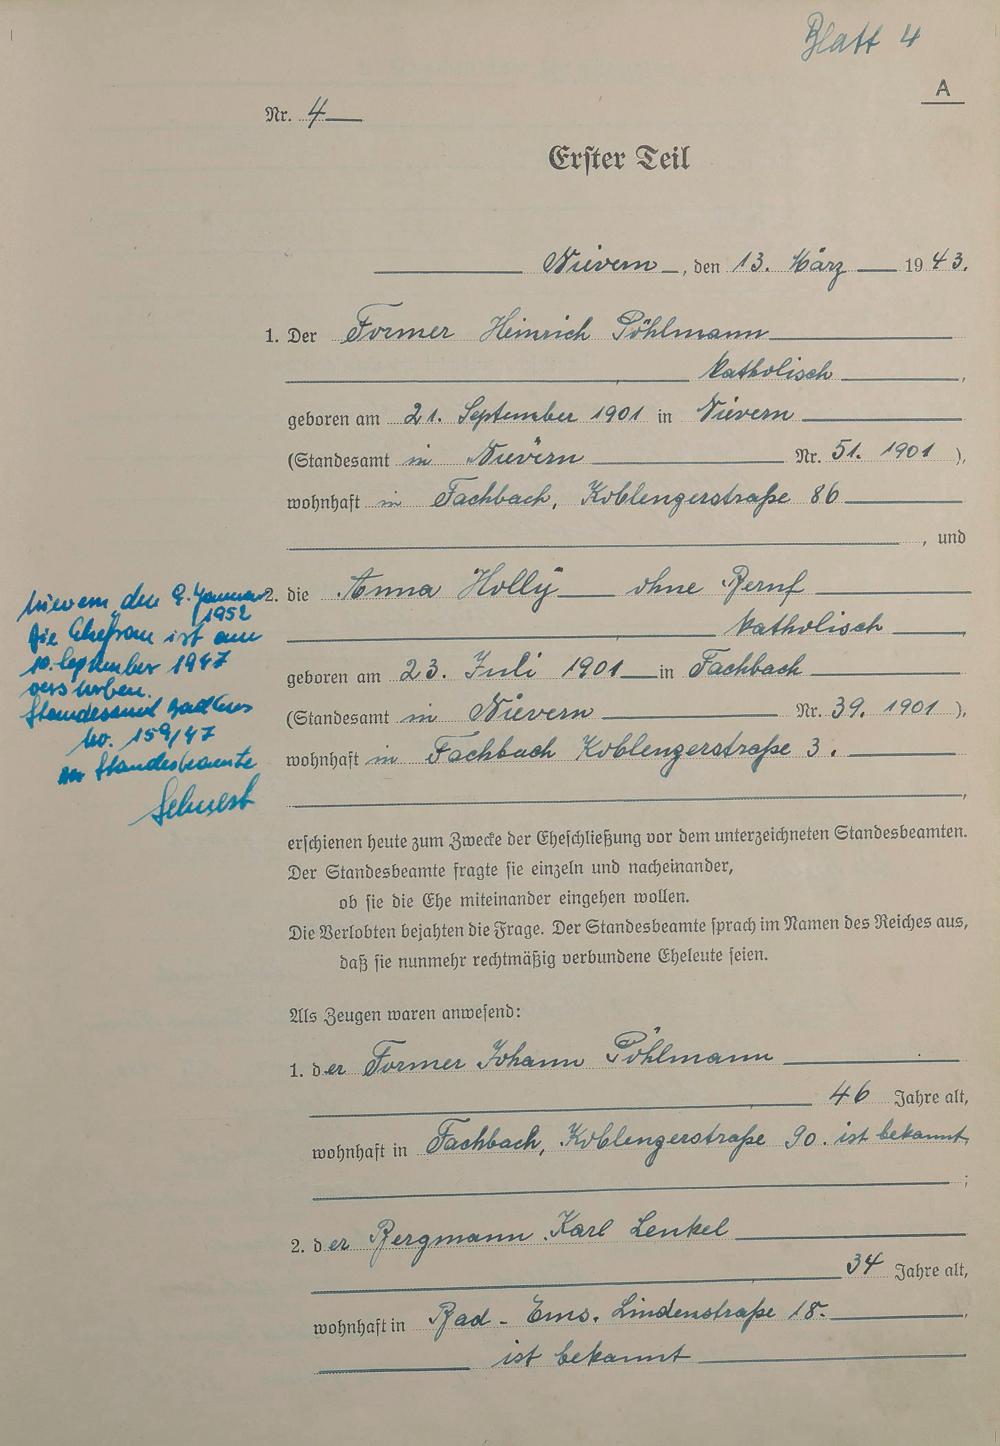 Blatt 4
A
Nr. 4
Erster Teil
Nievern, den 13. März 1943.
1. Der Former Heinrich Pöhlmann
katholisch,
geboren am 21. September 1901 in Nievern
(Standesamt in Nievern Nr. 51. 1901),
wohnhaft in Fachbach, Koblenzerstraße 86
, und
2. die Anna Holly ohne Beruf
katholisch,
geboren am 23. Juli 1901 in Fachbach
(Standesamt in Nievern Nr. 39. 1901),
wohnhaft in Fachbach Koblenzerstraße 3.
,
Nievern, den 9. Januar
1952
Die Ehefrau ist am
10. September 1947
verstorben.
Standesamt Bad Ems
No. 159/47
Der Standesbeamte
erschienen heute zum Zwecke der Eheschließung vor dem unterzeichneten Standesbeamten.
Der Standesbeamte fragte sie einzeln und nacheinander,
ob sie die Ehe miteinander eingehen wollen.
Die Verlobten bejahten die Frage. Der Standesbeamte sprach im Namen des Reiches aus,
daß sie nunmehr rechtmäßig verbundene Eheleute seien.
Als Zeugen waren anwesend:
1. der Former Johann Pöhlmann
46 Jahre alt,
wohnhaft in Fachbach, Koblenzerstraße 90. ist bekannt
;
2. der Bergmann Karl Lenkel
34 Jahre alt,
wohnhaft in Bad-Ems. Lindenstraße 18.
ist bekannt